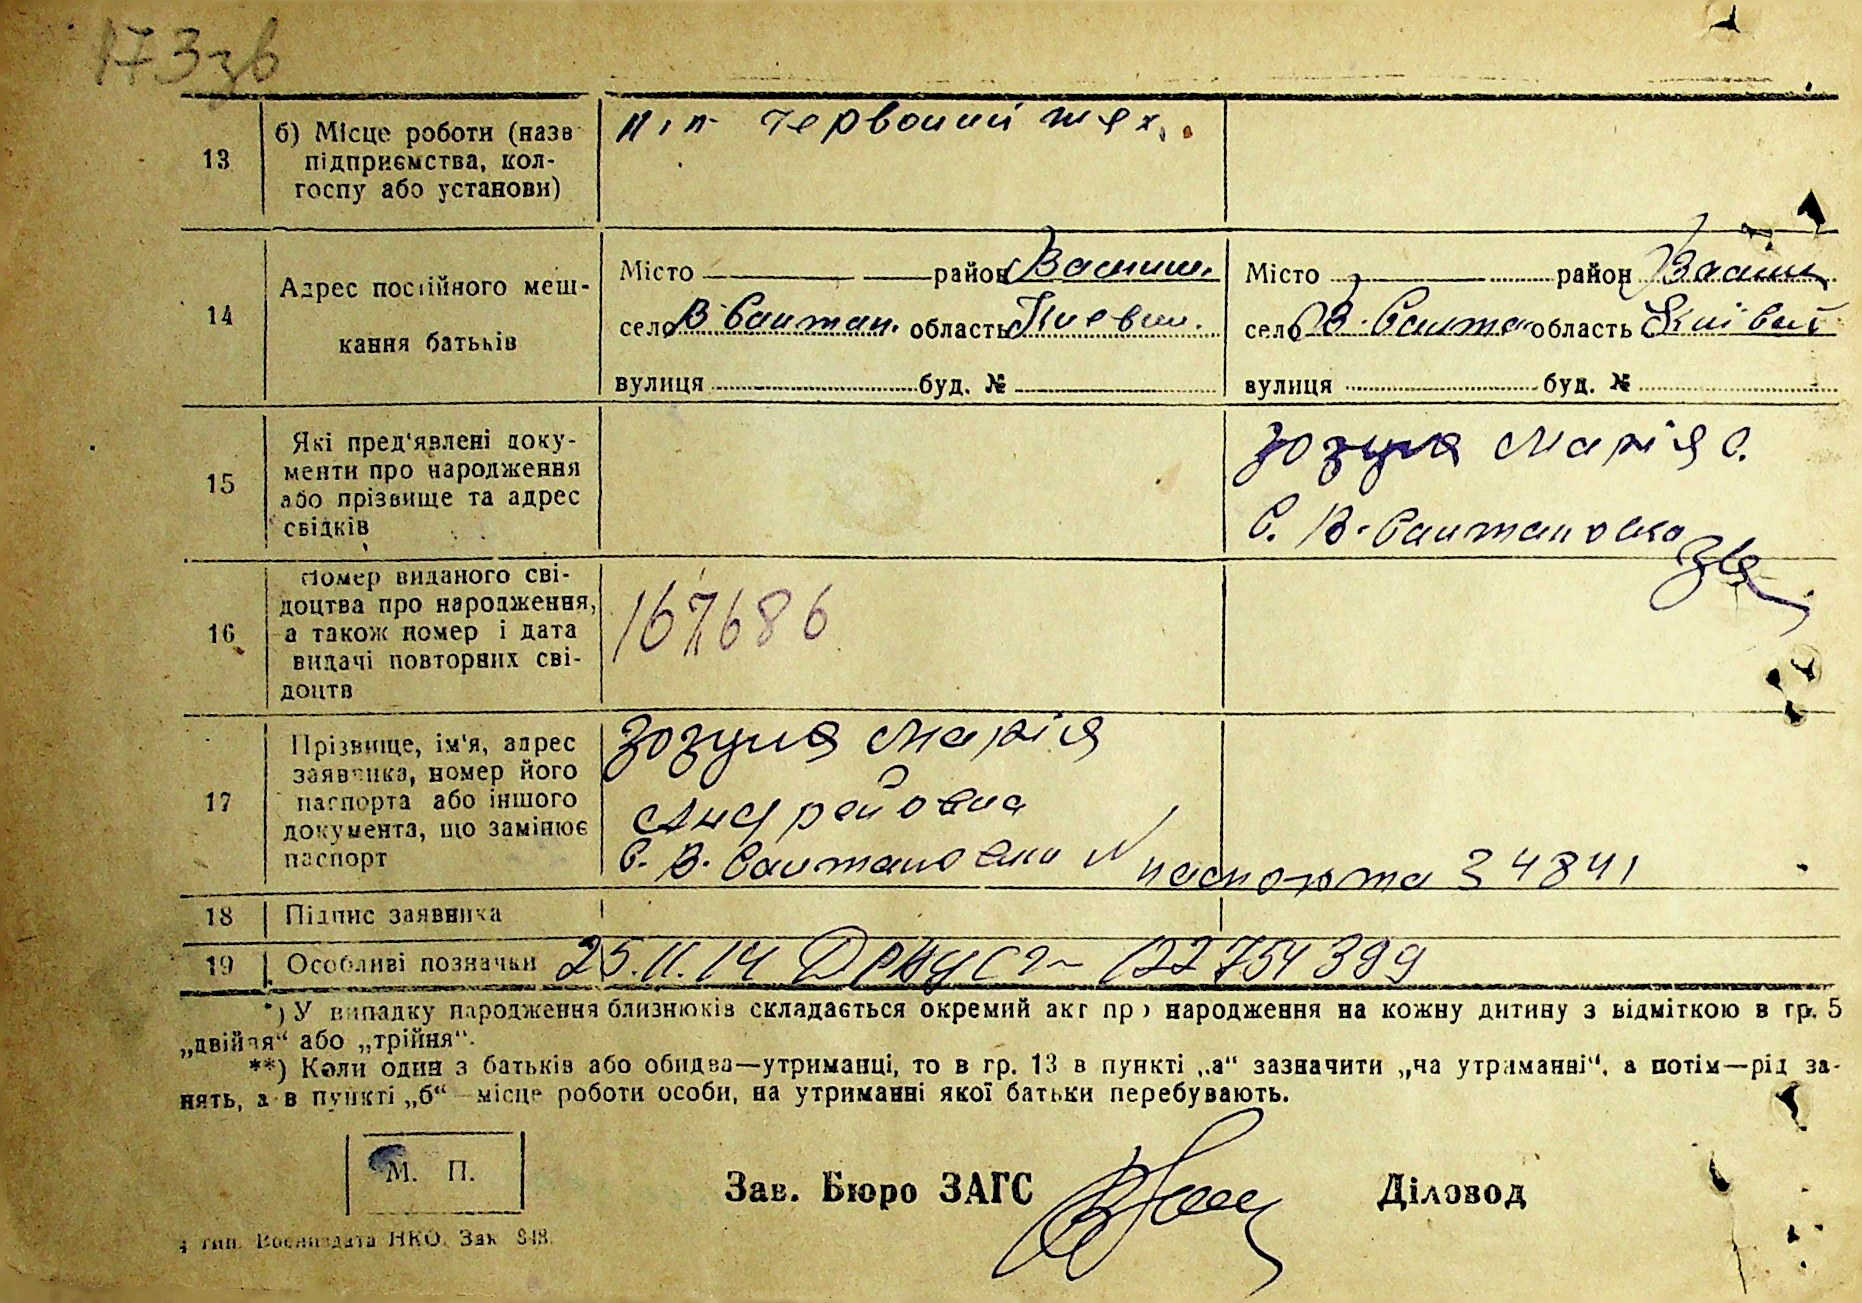 173 зв
13
б) Місце роботи (назв
підприємства, кол-
госпу або установи)
Червоний шлях
14
Адрес постійного меш-
кання батьків
Місто район Васильк.
село В-Салтан. область Киевск.
вулиця буд. №
Місто район
село В-Салтан область Київськ
вулиця буд. №
15
Які пред'явлені доку-
менти про народження
або прізвище та адрес
свідків
Зозуля Марія
с. В-Салтановка
16
Номер виданого сві-
доцтва про народження,
а також номер і дата
видачі повторних сві-
доцтв
167686
17
Прізвище, ім'я, адрес
заявника, номер його
паспорта або іншого
документа, що замінює
паспорт
Зозуля Марія
Андрейовна
с. В-Салтановка N паспорта 34841
18 Підпис заявника
19 Особливі позначки 25.11.14 122754399
*) У випадку народження близнюків складається окремий акт про народження на кожну дитину з відміткою в гр. 5
„двійня“ або „трійня“.
**) Коли один з батьків або обидва—утриманці, то в гр. 13 в пункті „а“ зазначити „на утриманні“, а потім—рід за-
нять, а в пункті „б“—місце роботи особи, на утриманні якої батьки перебувають.
М. П.
Зав. Бюро ЗАГС Діловод
4 тип. Воениздата НКО. Зак. 848.